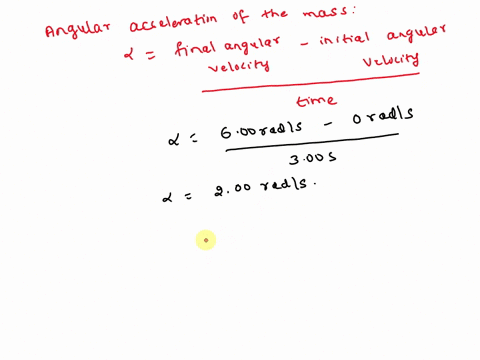 Angular acceleration of the mass:
α = final angular velocity - initial angular velocity
time
α = 6.00 rad/s - 0 rad/s
3.00 s
α = 2.00 rad/s.